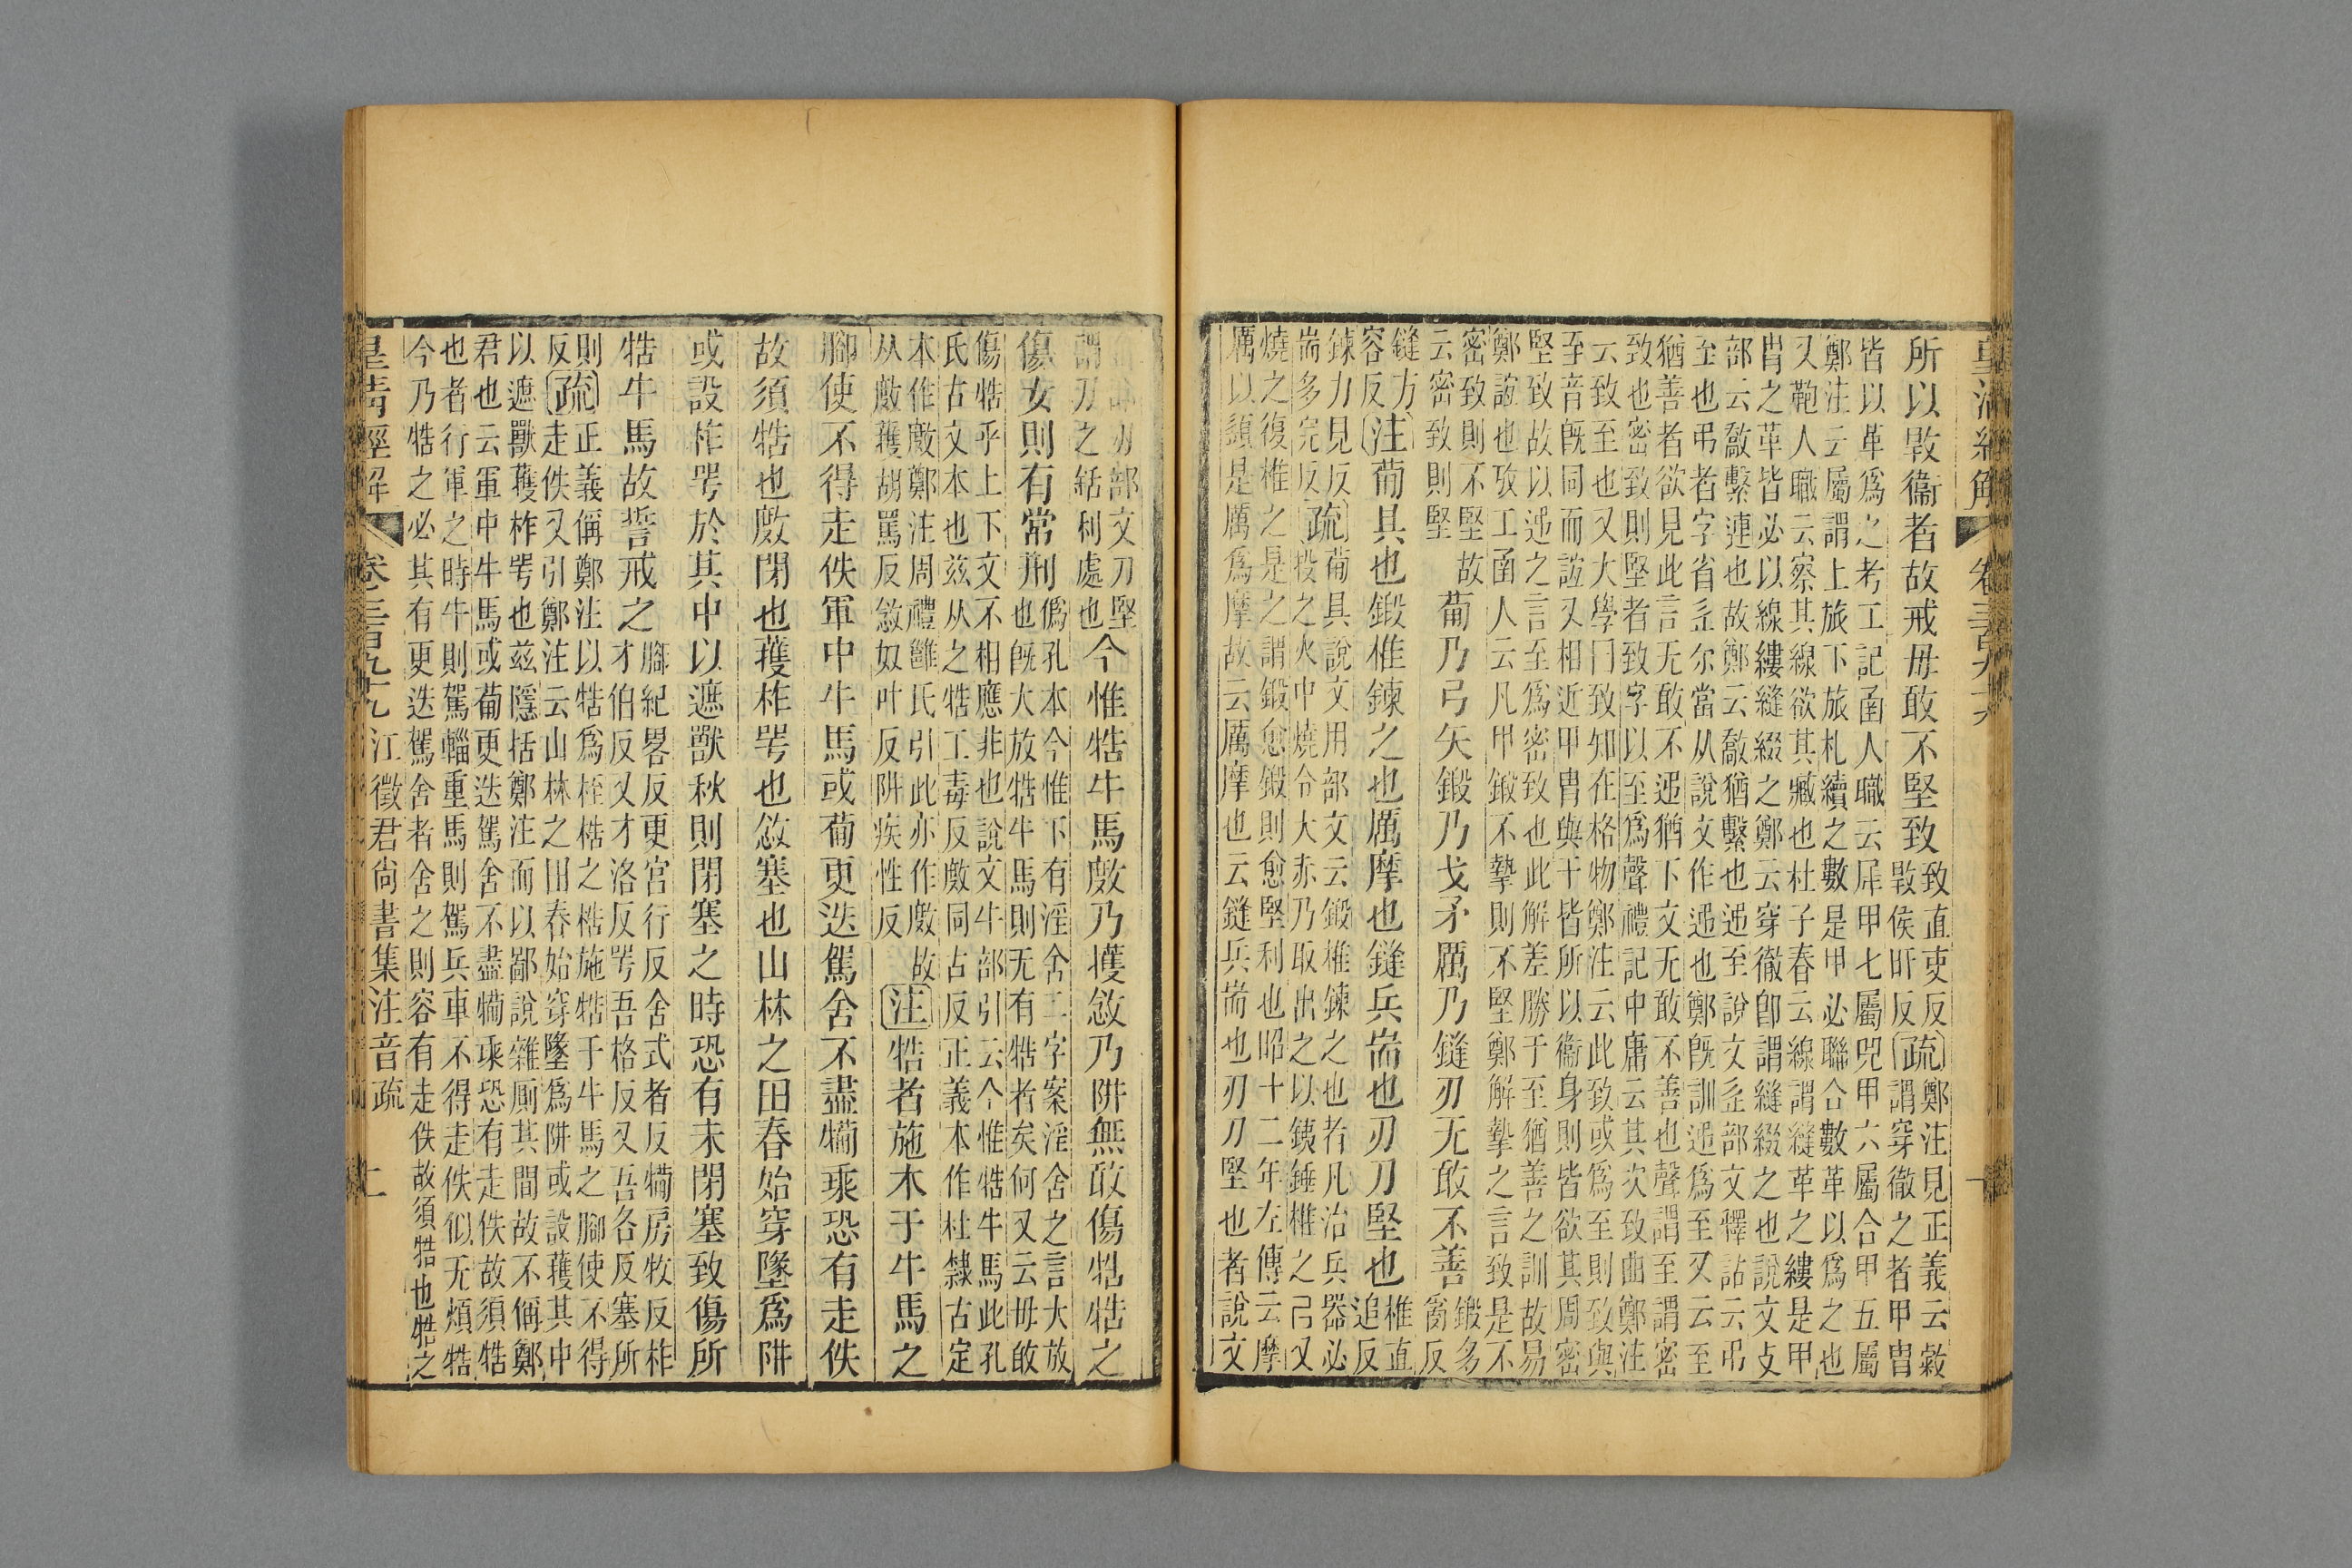 所以衞者故戒毋敢不堅致
致直吏反
侯旰反
疏
鄭注見正義云穀
謂穿徹之者甲冑
皆以革爲之考工記函人職云犀甲七屬兕甲六屬合甲五屬
鄭注云屬謂上旅下旅札續之數是甲必聯合數革以爲之也
又鞄人職云察其線欲其臧也杜子春云線謂縫革之縷是甲
冑之革皆必以線縷縫綴之鄭云穿徹卽謂縫綴之也說文攴
部云敿繫連也故鄭云敿猶繫也𨒟至說文辵部文釋詁云弔
至也弔者字省辵尔當从說文作𨒟也鄭旣訓𨒟爲至又云至
猶善者欲見此言无敢不𨒟猶下文无敢不善也聲謂至謂密
致也密致則堅者致字以至爲聲禮記中庸云其次致曲鄭注
云致至也又大學曰致知在格物鄭注云此致或爲至則致與
至音旣同而誼又相近甲冑與干皆所以衞身則皆欲其周密
堅致故以𨒟之言至爲密致也此解差勝于至猶善之訓故易
鄭誼也攷工函人云凡甲鍛不摯則不堅鄭解摯之言致是不
密致則不堅故
云密致則堅
葡乃弓矢鍛乃戈矛厲乃鏠刃无敢不善
鍛多
反
鏠方
容反
注
葡具也鍛椎鍊之也厲摩也鏠兵耑也刃刀堅也
椎直
追反
鍊力見反
耑多完反
疏
葡具說文用部文云鍛椎鍊之也者凡治兵器必
投之火中燒令大赤乃取出之以鐵錘椎之已又
燒之復椎之是之謂鍛愈鍛則愈堅利也昭十二年左傳云摩
厲以須是厲爲摩故云厲摩也云鏠兵耑也刃刀堅也者說文
刃部文刀堅
謂刀之銛利處也
今惟牿牛馬𢾖乃擭敜乃阱無敢傷牿牿之
傷女則有常刑
僞孔本今惟下有淫舍二字案淫舍之言大放
也旣大放牿牛馬則无有牿者矣何又云毋敢
傷牿乎上下文不相應非也說文牛部引云今惟牿牛馬此孔
氏古文本也兹从之牿工毒反𢾖同古反正義本作杜隸古定
本作𢾖鄭注周禮雝氏引此亦作𢾖故
从𢾖擭胡罵反敜奴叶反阱疾性反
注
牿者施木于牛馬之
腳使不得走佚軍中牛馬或葡更迭駕舍不盡犕乘恐有走佚
故須牿也𢾖閉也擭柞咢也敜塞也山林之田春始穿墜爲阱
或設柞咢於其中以遮獸秋則閉塞之時恐有未閉塞致傷所
牿牛馬故誓戒之
腳紀畧反更宮行反舍式者反犕房牧反柞
才伯反又才洛反咢吾格反又吾各反塞所
則
反
疏
正義偁鄭注以牿爲桎梏之梏施牿于牛馬之腳使不得
走佚又引鄭注云山林之田春始穿墜爲阱或設擭其中
以遮獸擭柞咢也兹隱括鄭注而以鄙說雜厠其間故不偁鄭
君也云軍中牛馬或葡更迭駕舍不盡犕乘恐有走佚故須牿
也者行軍之時牛則駕輜重馬則駕兵車不得走佚似无煩牿
今乃牿之必其有更迭駕舍者舍之則容有走佚故須牿也牿之
皇清經解
卷三百九十九
江徵君尙書集注音疏